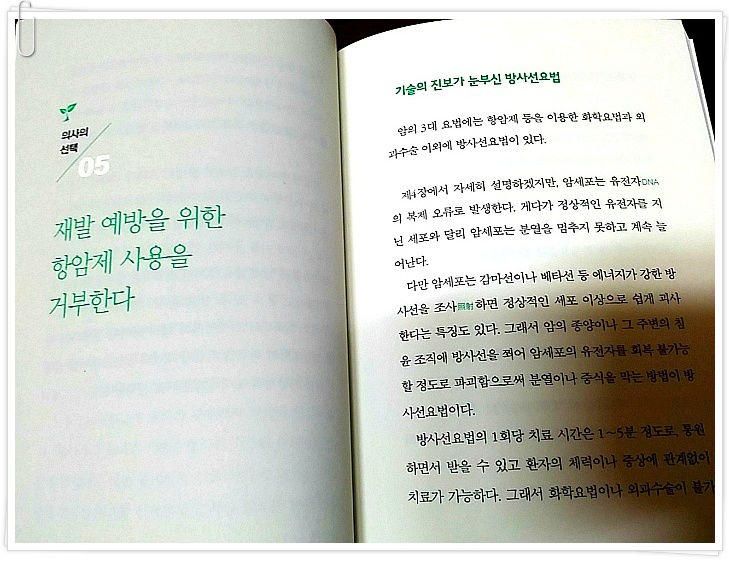 의사의
선택
05
재발 예방을 위한
항암제 사용을
거부한다
기술의 진보가 눈부신 방사선요법
암의 3대 요법에는 항암제 등을 이용한 화학요법과 외
과수술 이외에 방사선요법이 있다.
제4장에서 자세히 설명하겠지만, 암세포는 유전자DNA
의 복제 오류로 발생한다. 게다가 정상적인 유전자를 지
닌 세포와 달리 암세포는 분열을 멈추지 못하고 계속 늘
어난다.
다만 암세포는 감마선이나 베타선 등 에너지가 강한 방
사선을 조사照射하면 정상적인 세포 이상으로 쉽게 괴사
한다는 특징도 있다. 그래서 암의 종양이나 그 주변의 침
윤 조직에 방사선을 쬐어 암세포의 유전자를 회복 불가능
할 정도로 파괴함으로써 분열이나 증식을 막는 방법이 방
사선요법이다.
방사선요법의 1회당 치료 시간은 1~5분 정도로, 통원
하면서 받을 수 있고 환자의 체력이나 증상에 관계없이
치료가 가능하다. 그래서 화학요법이나 외과수술이 불가